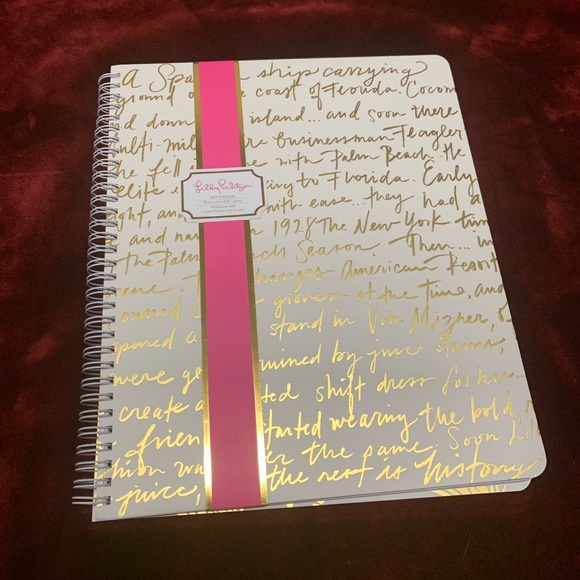 A Spa ship carrying
ground o e coast of Florida. Cocon
d down island... and soon there
ulti-mil re businessman Flagler
he fell e with Palm Beach. He
elite ing to Florida. Early
ght, an with ease... they had a
and na 1928 The New York tim
the Palm ch Season. Then... in
cene. T hanges American Resort
owned groves at the time, and
pened a stand in Via Mizner, o
were ge uined by juice stains,
create a ted shift dress for her...
frien tarted wearing the bold,
hion wa er the same. Soon Lill
juice, the rest is history
Lilly Pulitzer
NOTEBOOK